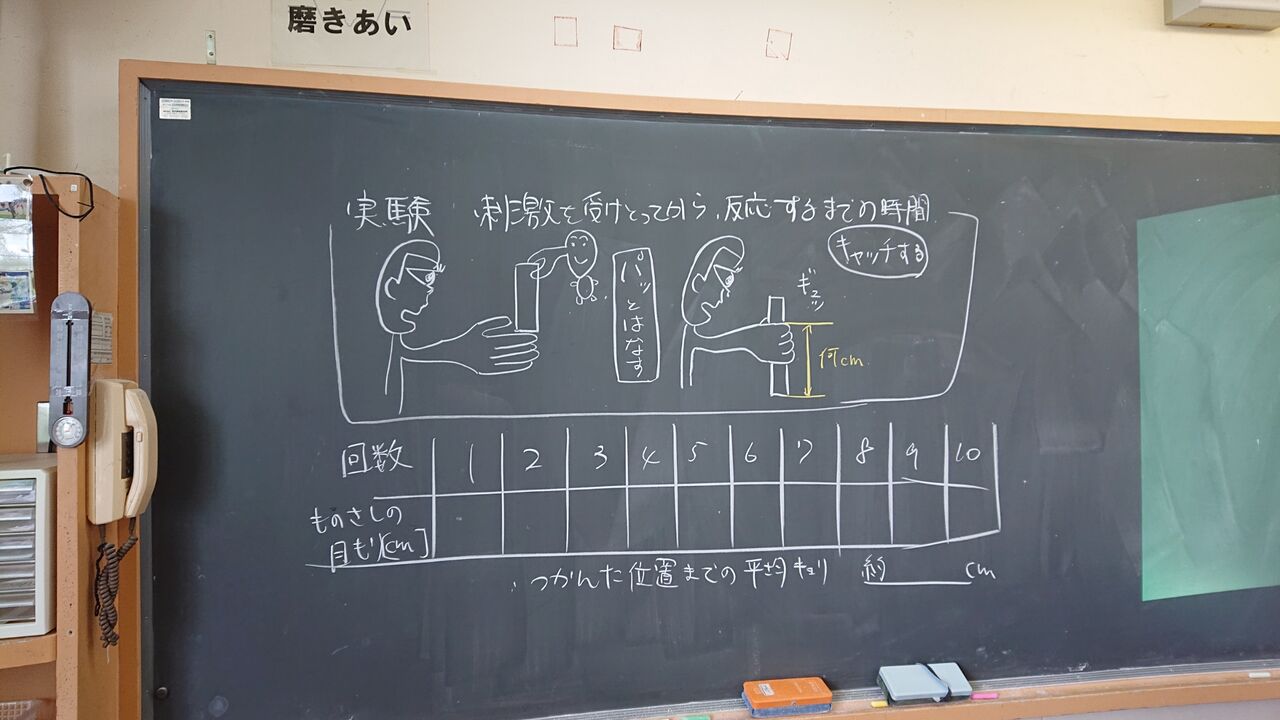 磨きあい
実験 刺激を受けとってから、反応するまでの時間
キャッチする
パッとはなす
ギュッ
何cm
回数 1 2 3 4 5 6 7 8 9 10
ものさしの
目もり[cm]
つかんだ位置までの平均キョリ 約 cm